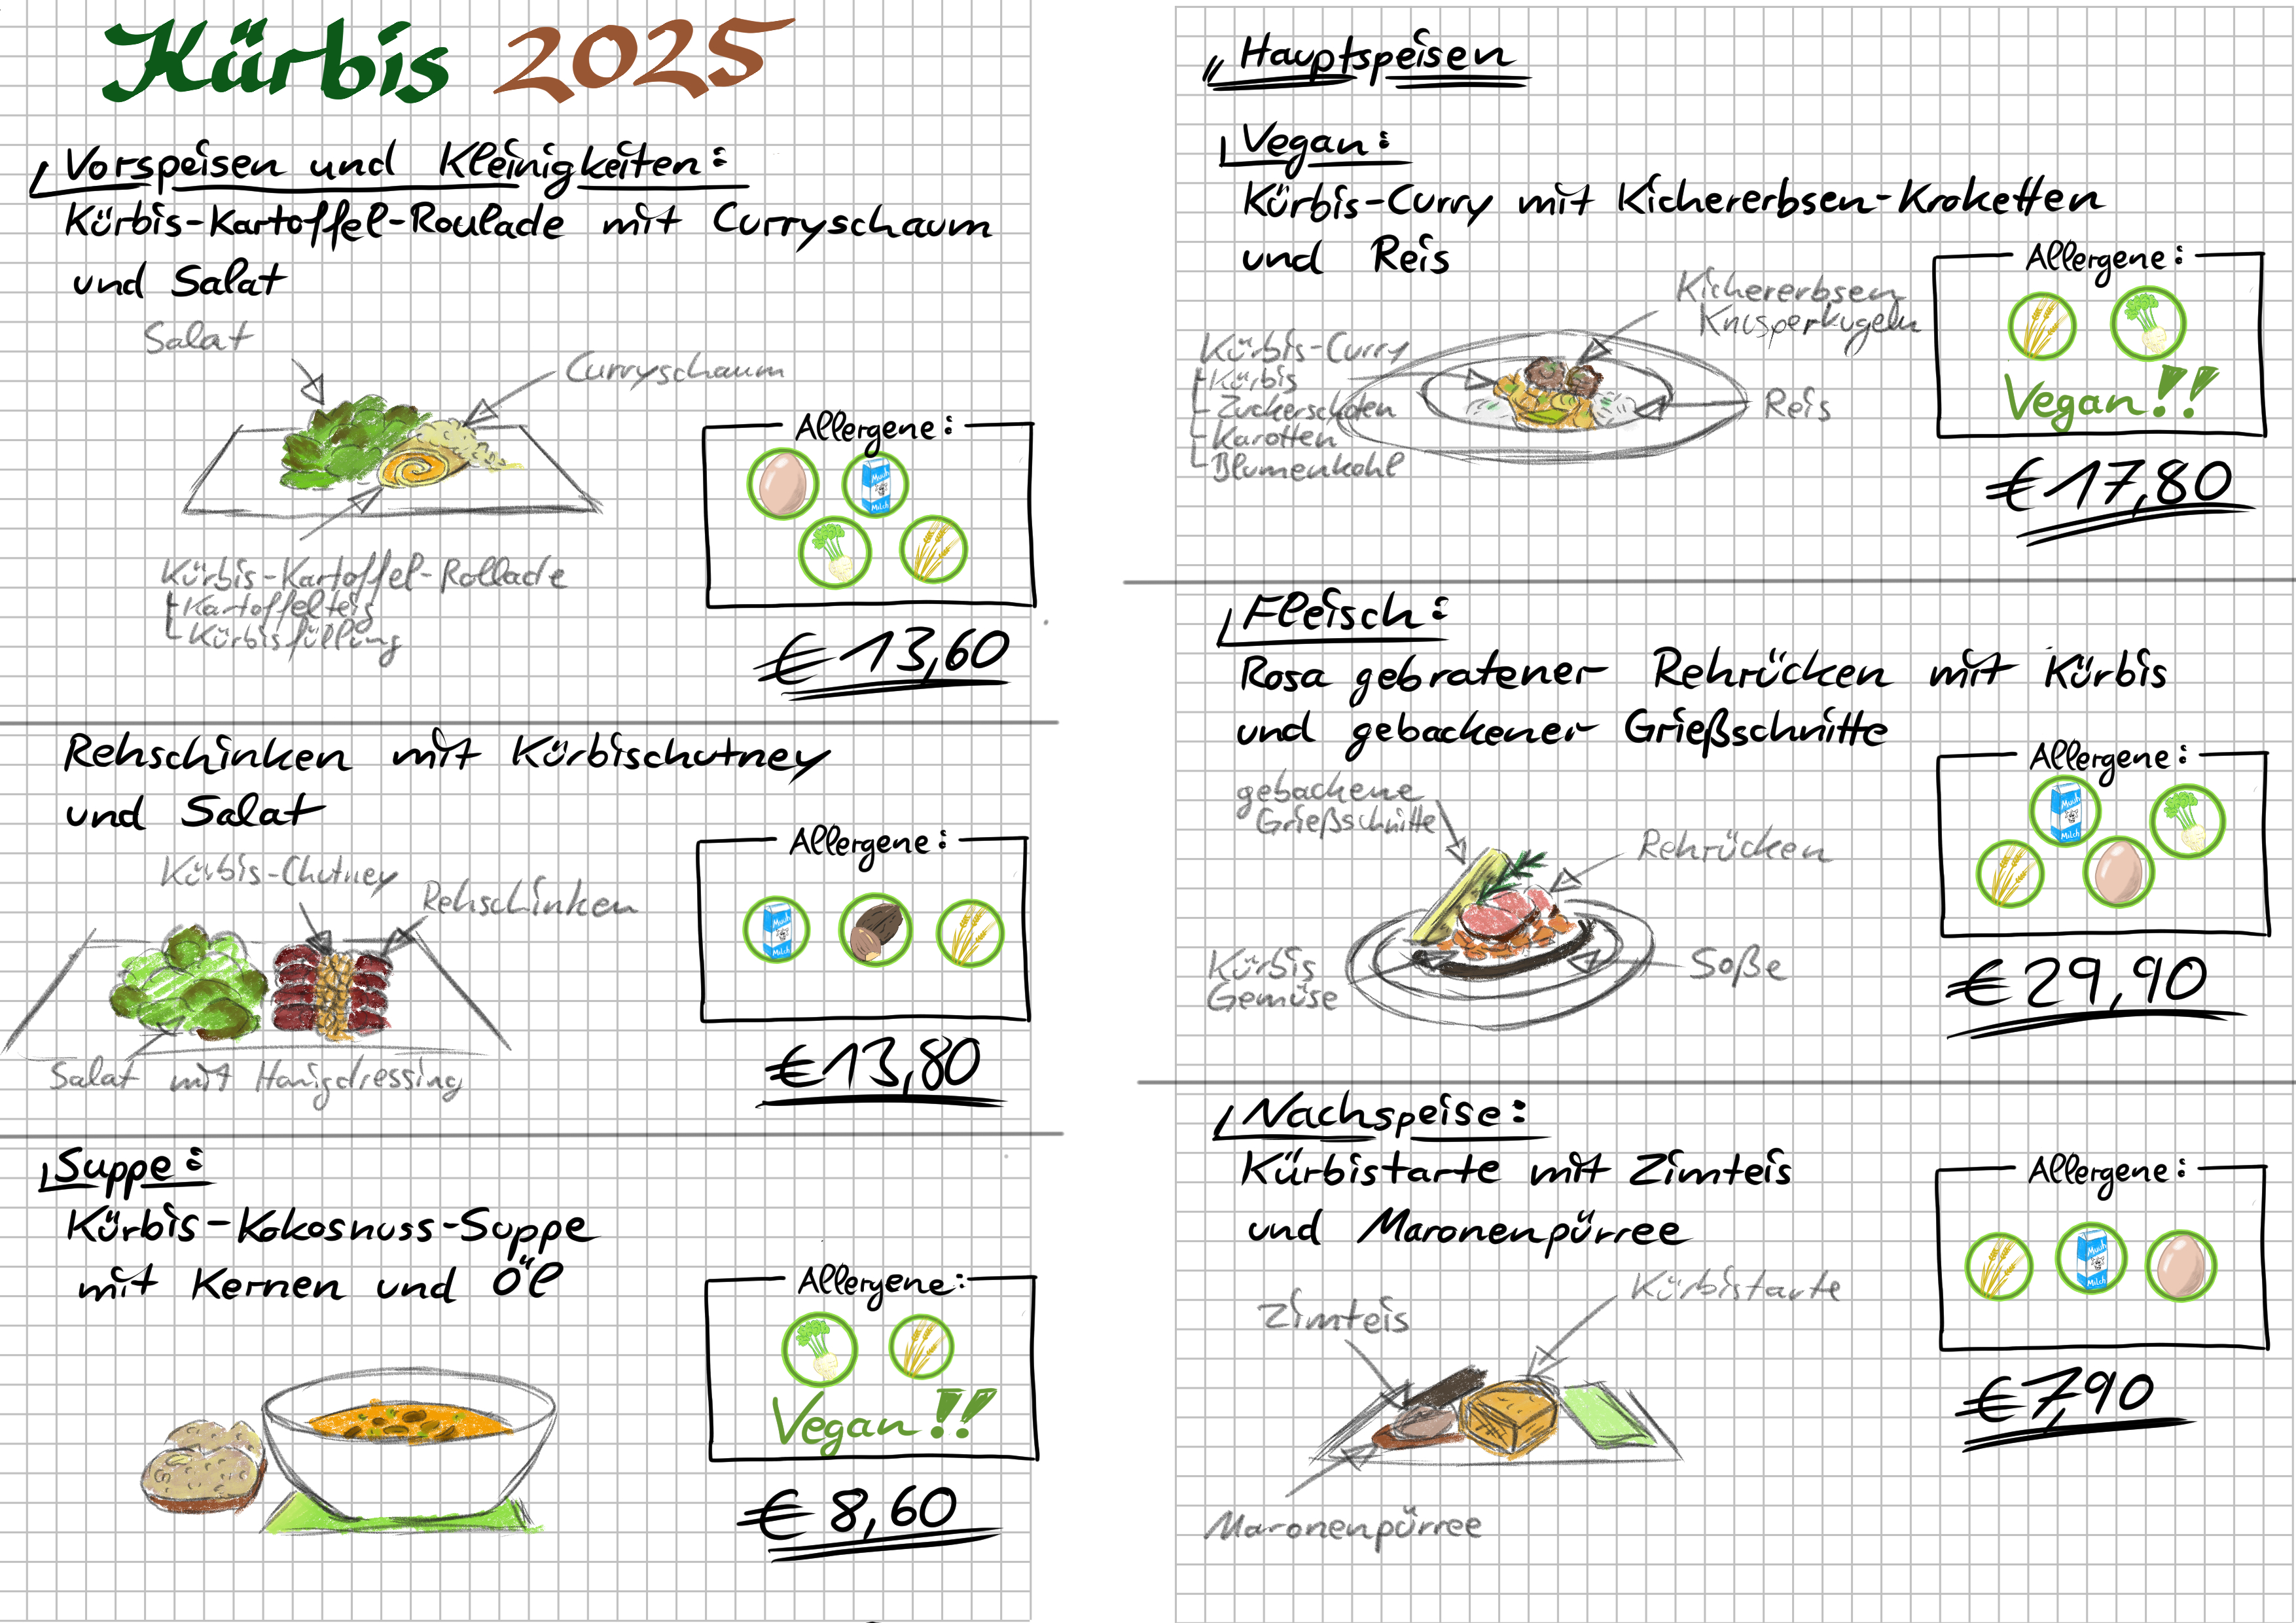 Kürbis 2025
Vorspeisen und Kleinigkeiten:
Kürbis-Kartoffel-Roulade mit Curryschaum
und Salat
Salat
Curryschaum
Kürbis-Kartoffel-Rollade
Kartoffelteig
Kürbisfüllung
Allergene:
Muuh
Milch
€ 13,60
Rehschinken mit Kürbischutney
und Salat
Kürbis-Chutney
Rehschinken
Salat mit Honigdressing
Allergene:
Muuh
Milch
€ 13,80
Suppe:
Kürbis-Kokosnuss-Suppe
mit Kernen und Öl
Allergene:
Vegan!!
€ 8,60
Hauptspeisen
Vegan:
Kürbis-Curry mit Kichererbsen-Kroketten
und Reis
Kichererbsen
Knusperkugeln
Kürbis-Curry
Kürbis
Zuckerschoten
Karotten
Blumenkohl
Reis
Allergene:
Vegan!!
€ 17,80
Fleisch:
Rosa gebratener Rehrücken mit Kürbis
und gebackener Grießschnitte
gebackene
Grießschnitte
Rehrücken
Kürbis
Gemüse
Soße
Allergene:
Muuh
Milch
€ 29,90
Nachspeise:
Kürbistarte mit Zimteis
und Maronenpürree
Zimteis
Kürbistarte
Maronenpürree
Allergene:
Muuh
Milch
€ 7,90